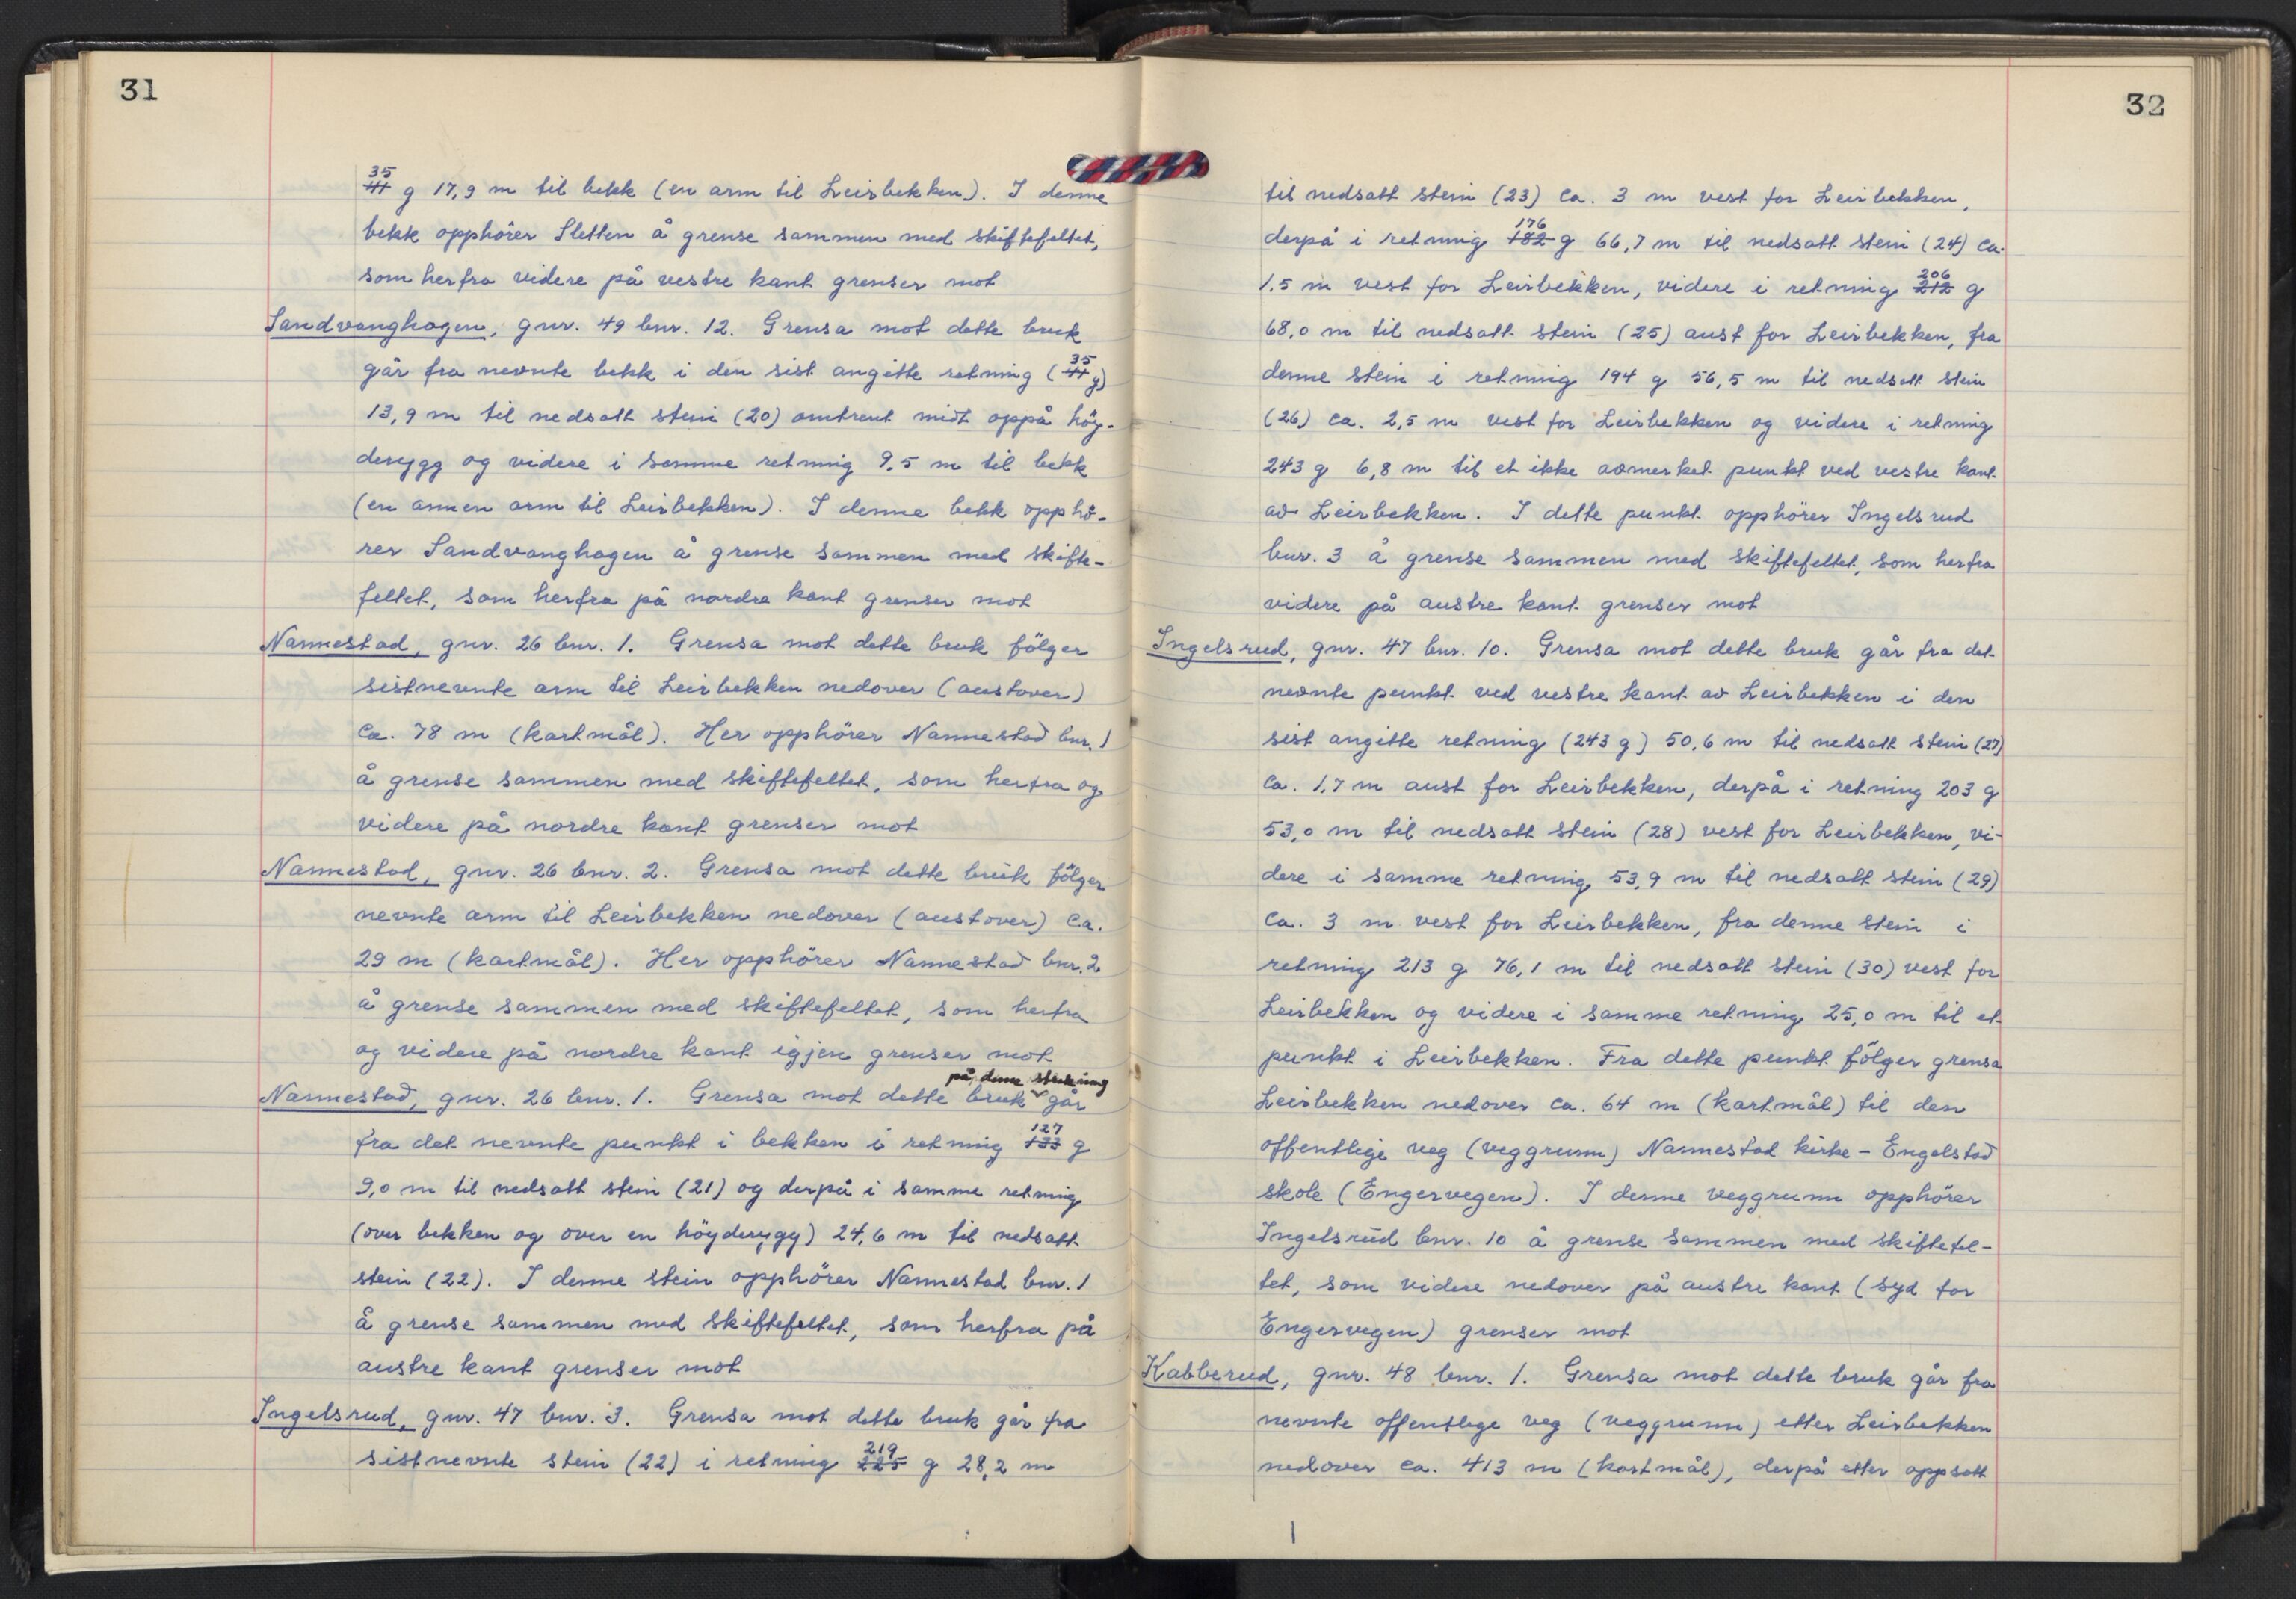 31
35
41 g 17,9 m til bekk (en arm til Leirbekken). I denne
bekk opphörer Sletten å grense sammen med skiftefeltet,
som herfra videre på vestre kant grenser mot
Sandvanghagen, gnr. 49 bnr. 12. Grensa mot dette bruk
35
går fra nevnte bekk i den sist angitte retning (41 g)
13,9 m til nedsatt stein (20) omtrent midt oppå hög-
derygg og videre i samme retning 9,5 m til bekk
(en annen arm til Leirbekken). I denne bekk opphö-
rer Sandvanghagen å grense sammen med skifte-
feltet, som herfra på nordre kant grenser mot
Nannestad, gnr. 26 bnr. 1. Grensa mot dette bruk fölger
sistnevnte arm til Leirbekken nedover (austover)
ca. 78 m (kartmål). Her opphörer Nannestad bnr. 1
å grense sammen med skiftefeltet, som herfra og
videre på nordre kant grenser mot
Nannestad, gnr. 26 bnr. 2. Grensa mot dette bruk fölger
nevnte arm til Leirbekken nedover (austover) ca.
29 m (kartmål). Her opphörer Nannestad bnr. 2
å grense sammen med skiftefeltet, som herfra
og videre på nordre kant igjen grenser mot
på denne strekning
Nannestad, gnr. 26 bnr. 1. Grensa mot dette bruk går
127
fra det nevnte punkt i bekken i retning 133 g
9,0 m til nedsatt stein (21) og derpå i samme retning
(over bekken og over en höyderygg) 24,6 m til nedsatt
stein (22). I denne stein opphörer Nannestad bnr. 1
å grense sammen med skiftefeltet, som herfra på
austre kant grenser mot
Ingelsrud, gnr. 47 bnr. 3. Grensa mot dette bruk går fra
219
sistnevnte stein (22) i retning 225 g 28,2 m
32
til nedsatt stein (23) ca. 3 m vest for Leirbekken,
176
derpå i retning 182 g 66,7 m til nedsatt stein (24) ca.
206
1,5 m vest for Leirbekken, videre i retning 212 g
68,0 m til nedsatt stein (25) aust for Leirbekken, fra
denne stein i retning 194 g 56,5 m til nedsatt stein
(26) ca. 2,5 m vest for Leirbekken og videre i retning
243 g 6,8 m til et ikke avmerket punkt ved vestre kant
av Leirbekken. I dette punkt opphörer Ingelsrud
bnr. 3 å grense sammen med skiftefeltet, som herfra
videre på austre kant grenser mot
Ingelsrud, gnr. 47 bnr. 10. Grensa mot dette bruk går fra det
nevnte punkt ved vestre kant av Leirbekken i den
sist angitte retning (243 g) 50,6 m til nedsatt stein (27)
ca. 1,7 m aust for Leirbekken, derpå i retning 203 g
53,0 m til nedsatt stein (28) vest for Leirbekken, vi-
dere i samme retning 53,9 m til nedsatt stein (29)
ca. 3 m vest for Leirbekken, fra denne stein i
retning 213 g 76,1 m til nedsatt stein (30) vest for
Leirbekken og videre i samme retning 25,0 m til et
punkt i Leirbekken. Fra dette punkt fölger grensa
Leirbekken nedover ca. 64 m (kartmål) til den
offentlige veg (veggrunn) Nannestad kirke - Engelstad
skole (Engervegen). I denne veggrunn opphörer
Ingelsrud bnr. 10 å grense sammen med skiftefel-
tet, som videre nedover på austre kant (syd for
Engervegen) grenser mot
Kabberud, gnr. 48 bnr. 1. Grensa mot dette bruk går fra
nevnte offentlege veg (veggrunn) etter Leirbekken
nedover ca. 413 m (kartmål), derpå etter oppsatt